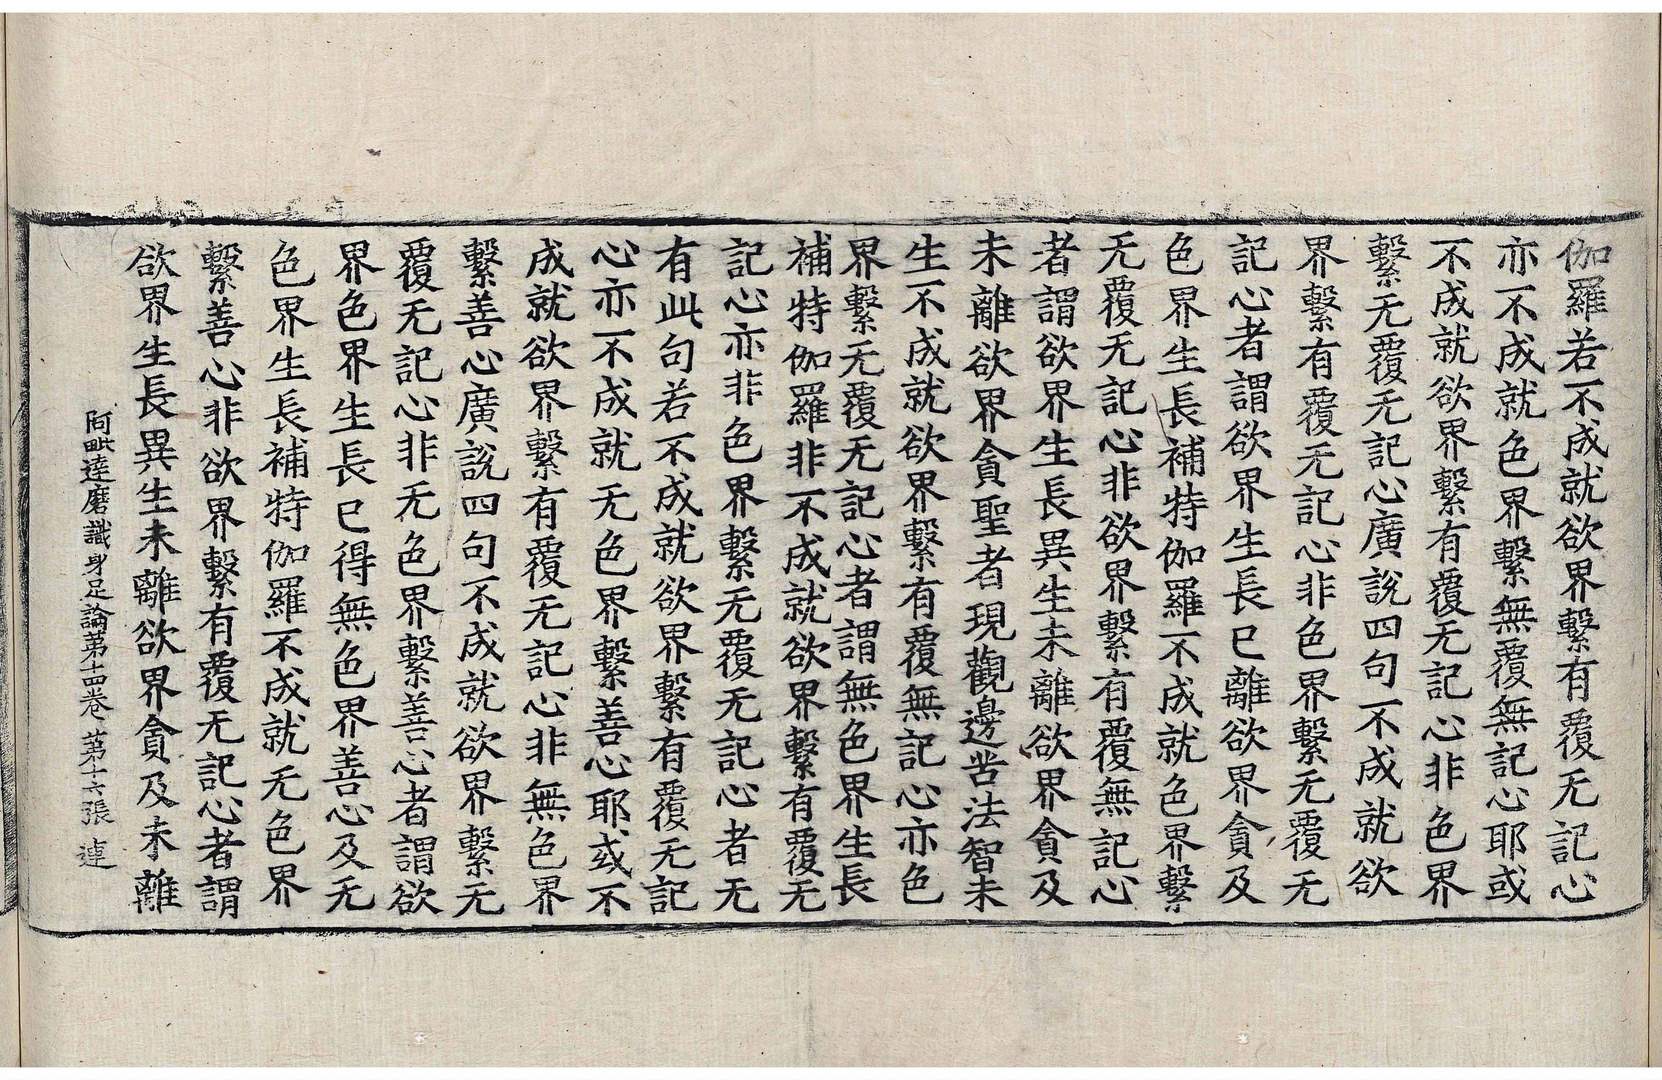 伽羅若不成就欲界繫有覆无記心
亦不成就色界繫無覆無記心耶或
不成就欲界繫有覆无記心非色界
繫无覆无記心廣說四句不成就欲
界繫有覆无記心非色界繫无覆无
記心者謂欲界生長已離欲界貪及
色界生長補特伽羅不成就色界繫
无覆无記心非欲界繫有覆無記心
者謂欲界生長異生未離欲界貪及
未離欲界貪聖者現觀邊苦法智未
生不成就欲界繫有覆無記心亦色
界繫无覆无記心者謂無色界生長
補特伽羅非不成就欲界繫有覆无
記心亦非色界繫无覆无記心者无
有此句若不成就欲界繫有覆无記
心亦不成就无色界繫善心耶或不
成就欲界繫有覆无記心非無色界
繫善心廣說四句不成就欲界繫无
覆无記心非无色界繫善心者謂欲
界色界生長已得無色界善心及无
色界生長補特伽羅不成就无色界
繫善心非欲界繫有覆无記心者謂
欲界生長異生未離欲界貪及未離
阿毗達磨識身足論第十四卷 第十六張 連